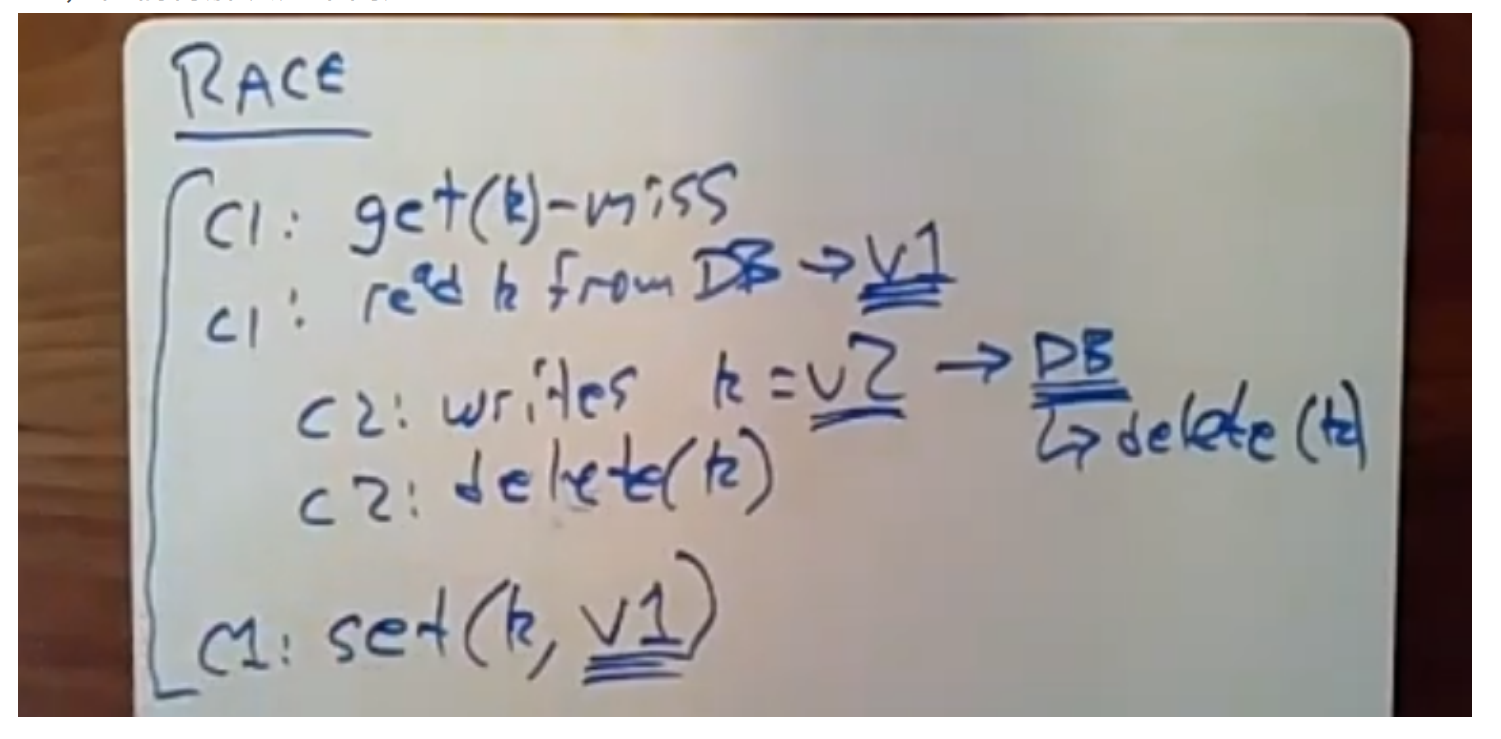 RACE
C1: get(k)-miss
C1: read k from DB → v1
C2: writes k = v2 → DB
↳ delete(k)
C2: delete(k)
C1: set(k, v1)